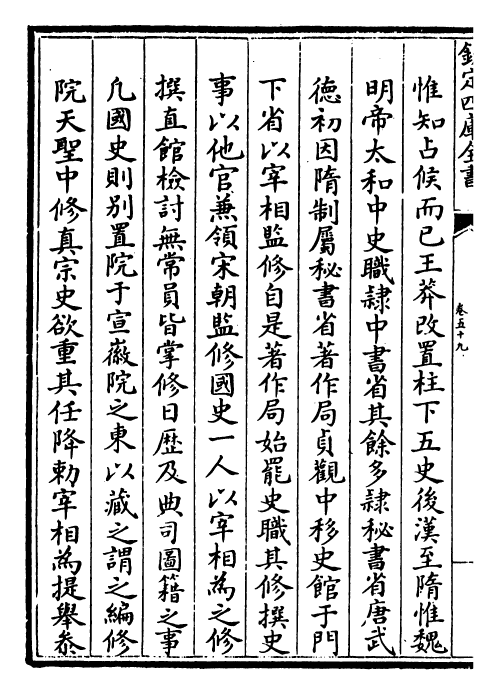 欽定四庫全書
卷五十九
惟知占候而已王莽改置柱下五史後漢至隋惟魏
明帝太和中史職隷中書省其餘多隷秘書省唐武
徳初因隋制屬秘書省著作局貞觀中移史館于門
下省以宰相監修自是著作局始罷史職其修撰史
事以他官兼領宋朝監修國史一人以宰相為之修
撰直館檢討無常員皆掌修日歴及典司圖籍之事
凡國史則别置院于宣徽院之東以藏之謂之編修
院天聖中修真宗史欲重其任降勅宰相為提舉叅